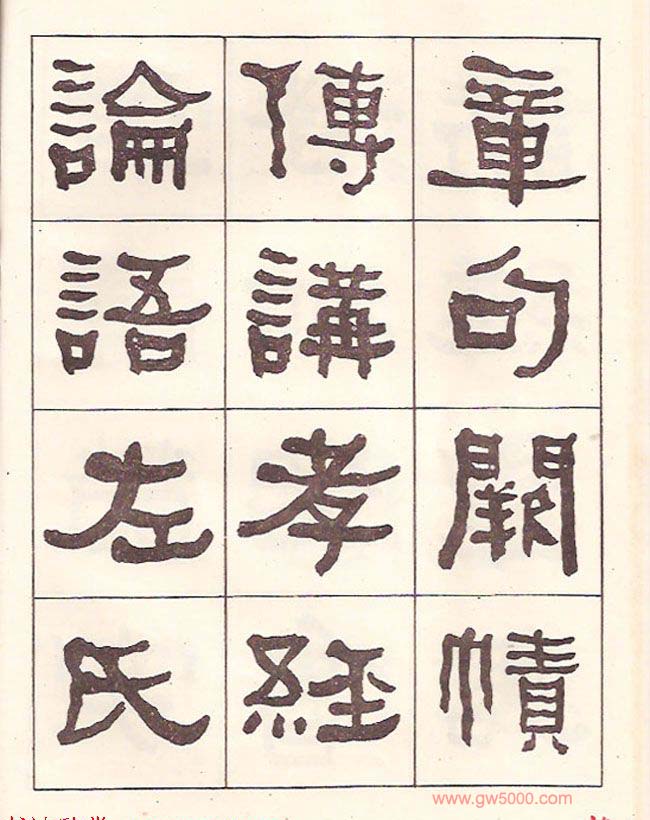 章句闕幘
傳講孝經
論語左氏
www.gw5000.com